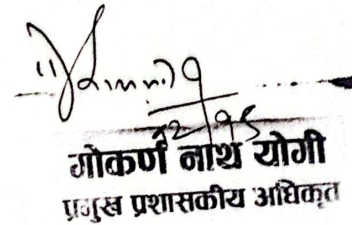 12/95
गोकर्ण नाथ योगी
प्रमुख प्रशासकीय अधिकृत